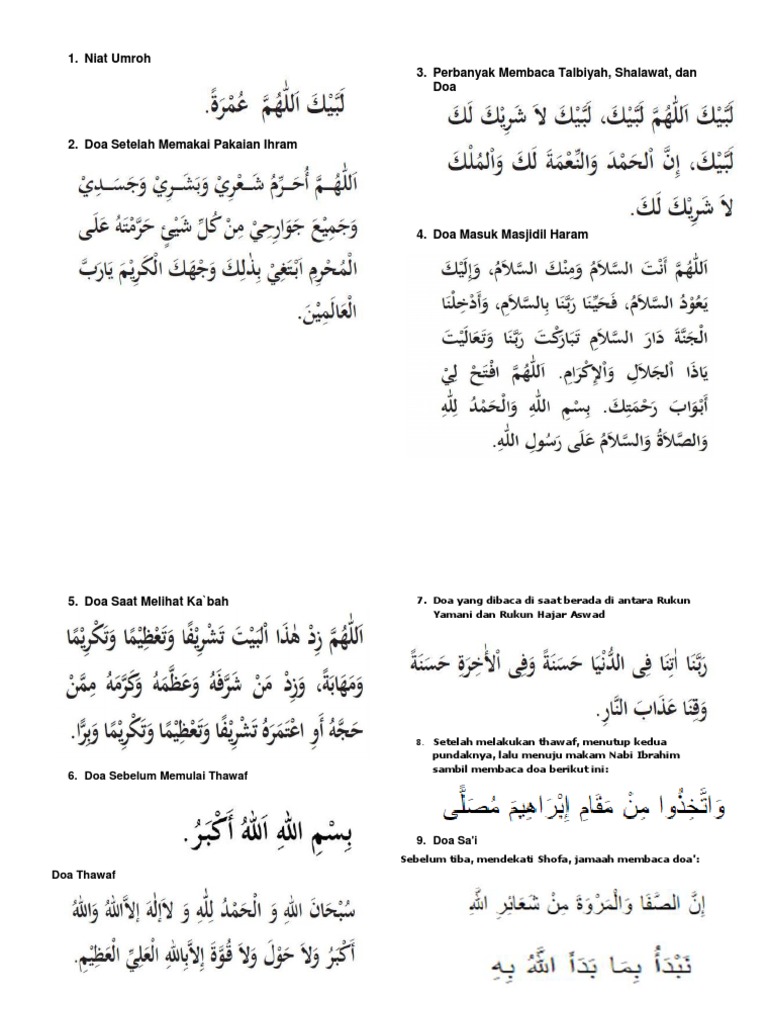 1. Niat Umroh
لَبَّيْكَ اَللّٰهُمَّ عُمْرَةً.
2. Doa Setelah Memakai Pakaian Ihram
اَللّٰهُـمَّ أُحَـرِّمُ شَـعْرِيْ وَبَشَـرِيْ وَجَسَـدِيْ
وَجَمِيْعَ جَوَارِحِيْ مِنْ كُلِّ شَيْئٍ حَرَّمْتَهُ عَلَى
الْمُحْرِمِ اَبْتَغِيْ بِذٰلِكَ وَجْهَكَ الْكَرِيْمَ يَارَبَّ
الْعَالَمِيْنَ.
3. Perbanyak Membaca Talbiyah, Shalawat, dan
Doa
لَبَّيْكَ اَللّٰهُمَّ لَبَّيْكَ، لَبَّيْكَ لاَ شَرِيْكَ لَكَ
لَبَّيْكَ، إِنَّ اْلحَمْدَ وَالنِّعْمَةَ لَكَ وَاْلمُلْكَ
لاَ شَرِيْكَ لَكَ.
4. Doa Masuk Masjidil Haram
اَللّٰهُمَّ أَنْتَ السَّلاَمُ وَمِنْكَ السَّلاَمُ، وَإِلَيْكَ
يَعُوْدُ السَّلاَمُ، فَحَيِّنَا رَبَّنَا بِالسَّلاَمِ، وَأَدْخِلْنَا
الْجَنَّةَ دَارَ السَّلاَمِ تَبَارَكْتَ رَبَّنَا وَتَعَالَيْتَ
يَاذَا اْلجَلاَلِ وَاْلإِكْرَامِ. اَللّٰهُمَّ افْتَحْ لِيْ
أَبْوَابَ رَحْمَتِكَ. بِسْمِ اللّٰهِ وَالْحَمْدُ لِلّٰهِ
وَالصَّلاَةُ وَالسَّلاَمُ عَلَى رَسُوْلِ اللّٰهِ.
5. Doa Saat Melihat Ka`bah
اَللّٰهُمَّ زِدْ هٰذَا الْبَيْتَ تَشْرِيْفًا وَتَعْظِيْمًا وَتَكْرِيْمًا
وَمَهَابَةً، وَزِدْ مَنْ شَرَّفَهُ وَعَظَّمَهُ وَكَرَّمَهُ مِمَّنْ
حَجَّهُ أَوِ اعْتَمَرَهُ تَشْرِيْفًا وَتَعْظِيْمًا وَتَكْرِيْمًا وَبِرًّا.
6. Doa Sebelum Memulai Thawaf
بِسْمِ اللّٰهِ اَللّٰهُ أَكْبَرُ.
Doa Thawaf
سُبْحَانَ اللّٰهِ وَ الْحَمْدُ لِلّٰهِ وَ لاَإِلٰهَ إِلاَّاللّٰهُ وَاللّٰهُ
أَكْبَرُ وَلاَ حَوْلَ وَلاَ قُوَّةَ إِلاَّبِاللّٰهِ الْعَلِيِّ الْعَظِيْمِ.
7. Doa yang dibaca di saat berada di antara Rukun
Yamani dan Rukun Hajar Aswad
رَبَّنَا اٰتِنَا فِى الدُّنْيَا حَسَنَةً وَفِى الْأٰخِرَةِ حَسَنَةً
وَقِنَا عَذَابَ النَّارِ.
8. Setelah melakukan thawaf, menutup kedua
pundaknya, lalu menuju makam Nabi Ibrahim
sambil membaca doa berikut ini:
وَاتَّخِذُوا مِنْ مَقَامِ إِبْرَاهِيمَ مُصَلًّى
9. Doa Sa'i
Sebelum tiba, mendekati Shofa, jamaah membaca doa':
إِنَّ الصَّفَا وَالْمَرْوَةَ مِنْ شَعَائِرِ اللَّهِ
نَبْدَأُ بِمَا بَدَأَ اللَّهُ بِهِ